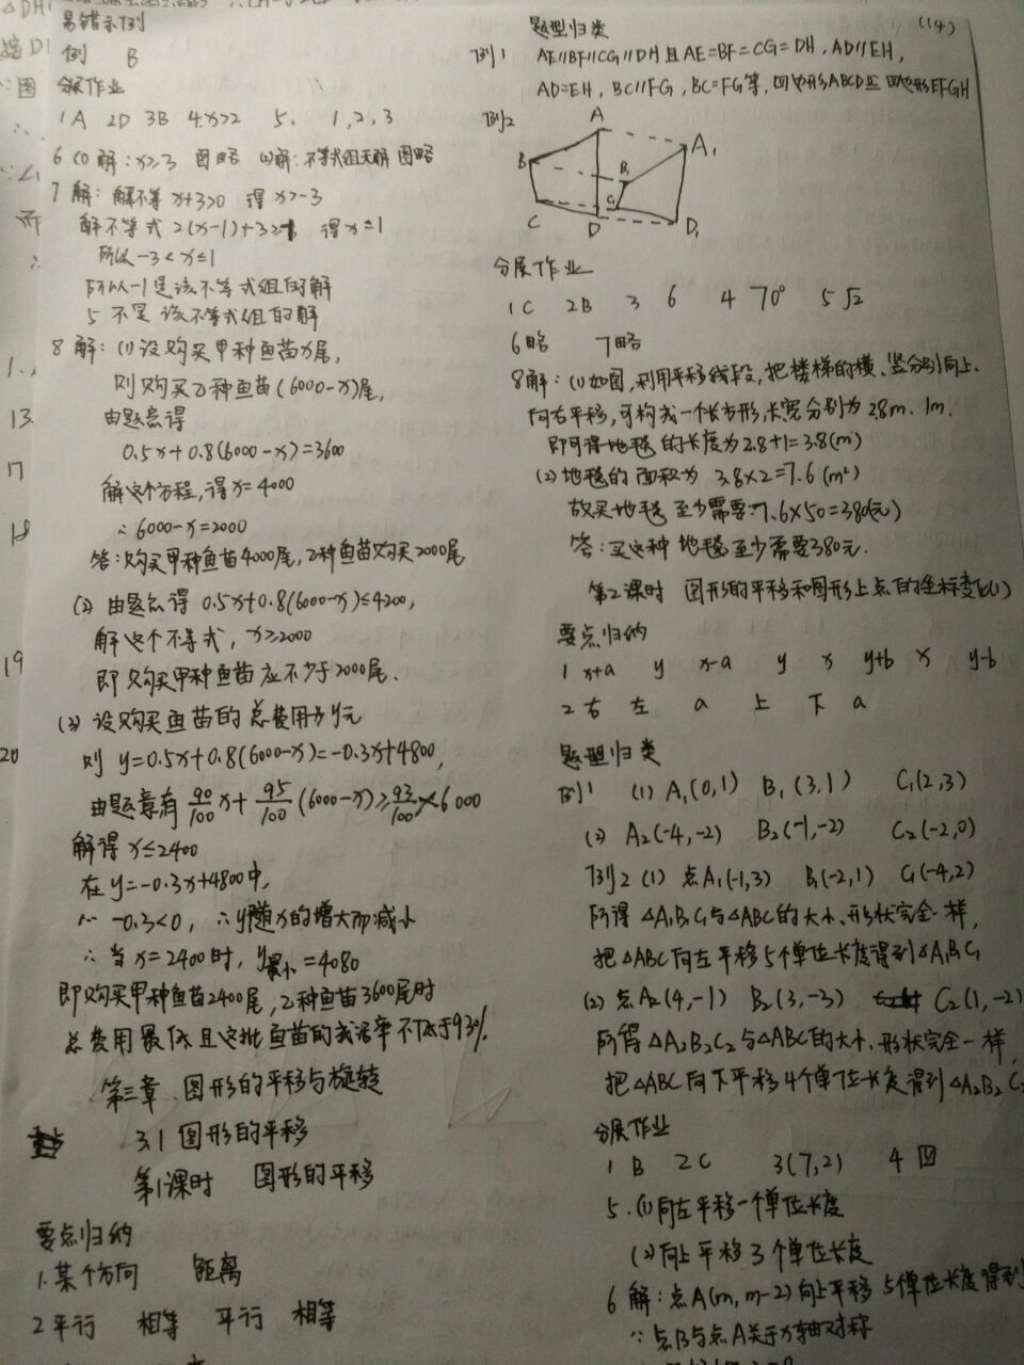 易错示例
例 B
分层作业
1A 2D 3B 4.x>2 5. 1,2,3
6 (1)解:x≥3 图略 (2)解:不等式组无解 图略
7 解:解不等 x+3>0 得 x>-3
解不等式 2(x-1)+3≥ 得 x≤1
所以 -3<x≤1
所以-1是该不等式组的解
5 不是 该不等式组的解
8 解:(1)设购买甲种鱼苗x尾,
则购买乙种鱼苗(6000-x)尾,
由题意得
0.5x+0.8(6000-x)=3600
解这个方程,得x=4000
∴6000-x=2000
答:购买甲种鱼苗4000尾,乙种鱼苗购买2000尾
(2) 由题意得 0.5x+0.8(6000-x)≤4200,
解这个不等式, x≥2000
即购买甲种鱼苗应不少于2000尾.
(3) 设购买鱼苗的总费用为y元
则 y=0.5x+0.8(6000-x)=-0.3x+4800,
由题意有 90/100 x + 95/100 (6000-x)≥ 93/100 ×6000
解得 x≤2400
在y=-0.3x+4800中,
∵ -0.3<0, ∴y随x的增大而减小
∴当x=2400时, y最小=4080
即购买甲种鱼苗2400尾,乙种鱼苗3600尾时
总费用最低且这批鱼苗的成活率不低于93%.
第三章 图形的平移与旋转
3.1 图形的平移
第1课时 图形的平移
要点归纳
1.某个方向 距离
2 平行 相等 平行 相等
13
17
18
19
20
题型归类 (14)
例1 AE//BF//CG//DH 且 AE=BF=CG=DH, AD//EH,
AD=EH, BC//FG, BC=FG等, 四边形ABCD≌四边形EFGH
例2
A
A₁
B
B₁
C
C₁
D
D₁
分层作业
1C 2B 3 6 4 70° 5 √2
6略 7略
8解:(1)如图,利用平移线段,把楼梯的横、竖分别向上、
向右平移,可构成一个长方形,长宽分别为2.8m. 1m.
即可得地毯的长度为2.8+1=3.8(m)
(2)地毯的面积为 3.8×2=7.6(m²)
故买地毯至少需要:7.6×50=380(元)
答:买这种地毯至少需要380元.
第2课时 图形的平移和图形上点的坐标变化(1)
要点归纳
1 x+a y x-a y x y+b x y-b
2 右 左 a 上 下 a
题型归类
例1 (1) A₁(0,1) B₁(3,1) C₁(2,3)
(2) A₂(-4,-2) B₂(-1,-2) C₂(-2,0)
例2 (1) 点A₁(-1,3) B₁(-2,1) C₁(-4,2)
所得 △A₁B₁C₁与△ABC的大小、形状完全一样,
把△ABC向左平移5个单位长度得到△A₁B₁C₁
(2) 点A₂(4,-1) B₂(3,-3) C₂(1,-2)
所得 △A₂B₂C₂与△ABC的大小、形状完全一样,
把△ABC向下平移4个单位长度得到△A₂B₂C₂
分层作业
1 B 2C 3(7,2) 4 四
5.(1)向左平移一个单位长度
(2)向上平移3个单位长度
6 解:点A(m,m-2)向上平移5个单位长度得到
∵点B与点A关于x轴对称